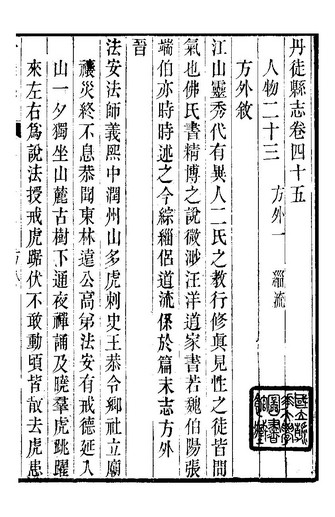 丹徒縣志卷四十五
人物二十三 方外一 緇流
方外敘
江山靈秀代有異人二氏之教行修真見性之徒皆間
氣也佛氏書精博之說微渺汪洋道家書若魏伯陽張
端伯亦時時述之今綜緇侶道流係於篇末志方外
晉
法安法師義熙中潤州山多虎刺史王恭令鄉社立廟
禳災終不息恭聞東林遠公高弟法安有戒德延入
山一夕獨坐山麓古樹下通夜禪誦及曉羣虎跳躍
來左右為說法授戒虎踞伏不敢動頃皆散去虎患